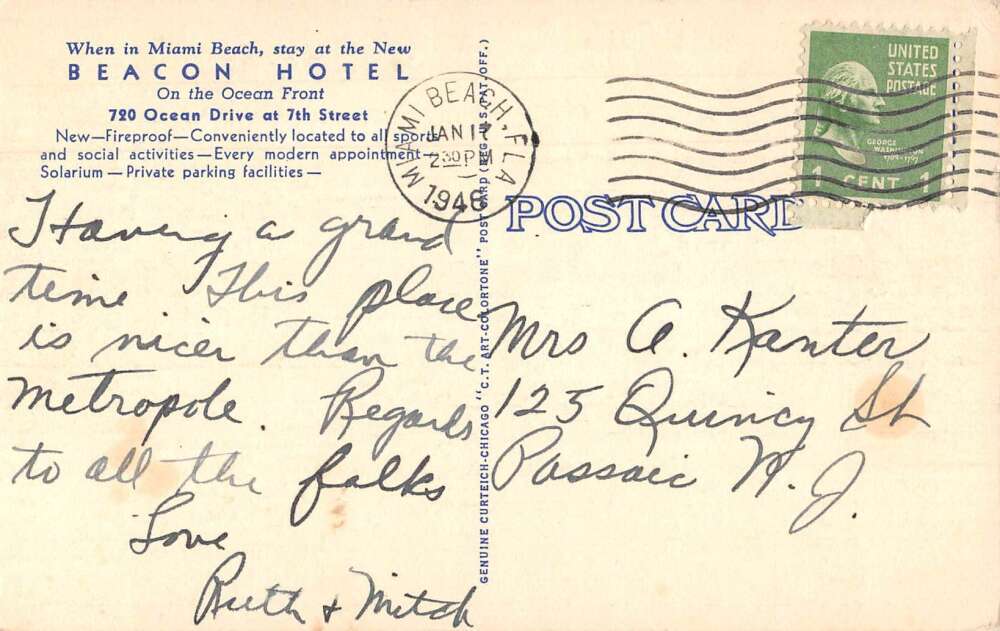 When in Miami Beach, stay at the New
BEACON HOTEL
On the Ocean Front
720 Ocean Drive at 7th Street
New—Fireproof—Conveniently located to all sports
and social activities—Every modern appointment—
Solarium—Private parking facilities—
Having a grand
time This place
is nicer than the
Metropole. Regards
to all the folks
Love
Ruth & Mitch
GENUINE CURTEICH-CHICAGO "C.T. ART-COLORTONE" POST CARD (REG. U.S. PAT. OFF.)
MIAMI BEACH, FLA
JAN 17
2 30 PM
1946
UNITED
STATES
POSTAGE
GEORGE
WASHINGTON
1789-1797
1 CENT 1
POST CARD
Mrs A. Kanter
125 Quincy St
Passaic N.J.